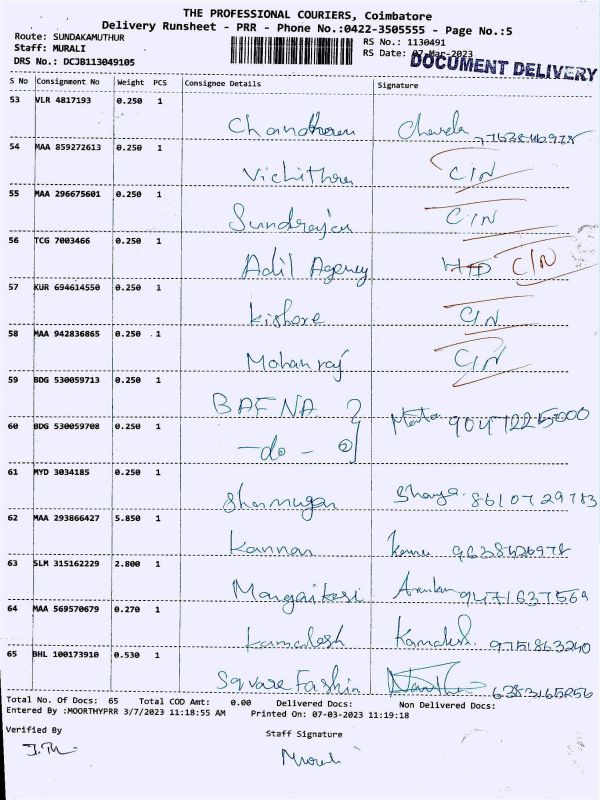 THE PROFESSIONAL COURIERS, Coimbatore
Delivery Runsheet - PRR - Phone No.:0422-3505555 - Page No.:5
Route: SUNDAKAMUTHUR
Staff: MURALI
DRS No.: DCJB113049105
RS No.: 1130491
RS Date: 07-Mar-2023
DOCUMENT DELIVERY
S No Consignment No Weight PCS Consignee Details Signature
53 VLR 4817193 0.250 1
54 MAA 859272613 0.250 1
Vichithra C/N
55 MAA 296675601 0.250 1
Sundrajan C/N
56 TCG 7003466 0.250 1
Adil Agency C/N
57 KUR 694614550 0.250 1
Kishore C/N
58 MAA 942836865 0.250 1
Mohanraj C/N
59 BDG 530059713 0.250 1
BAFNA
60 BDG 530059708 0.250 1
-do-
61 MYD 3034185 0.250 1
Shanmugan
62 MAA 293866427 5.850 1
Kannan
63 SLM 315162229 2.800 1
Mangaikasi 9471637569
64 MAA 569570679 0.270 1
Kamalesh Kamalesh. 9751863240
65 BHL 100173910 0.530 1
Square Fashin 6383165256
Total No. Of Docs: 65 Total COD Amt: 0.00 Delivered Docs: Non Delivered Docs:
Entered By :MOORTHYPRR 3/7/2023 11:18:55 AM Printed On: 07-03-2023 11:19:18
Verified By
Staff Signature